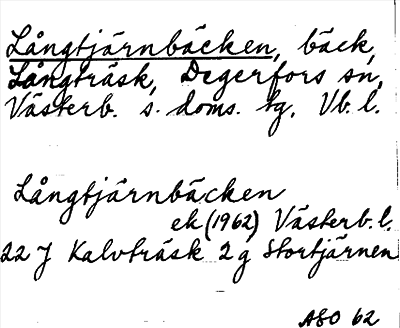 Långtjärnbäcken, bäck,
Långträsk, Degerfors sn,
Västerb. s. doms. tg, Vb. l.
Långtjärnbäcken
ek (1962) Västerb. l.
22 J Kalvträsk 2 g Stortjärnen
ASO 62